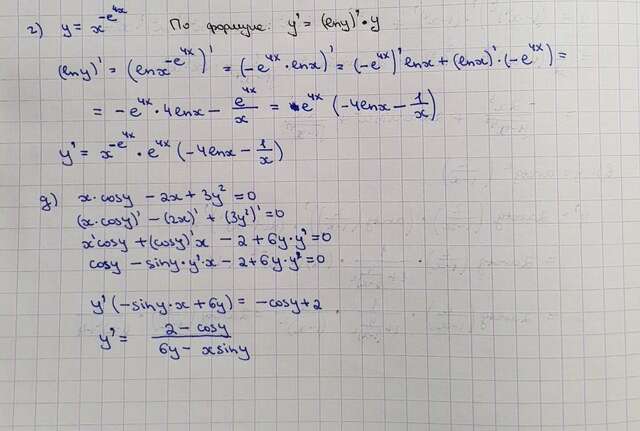 г) y = x^{-e^{4x}} По формуле: y' = (lny)'·y
(lny)' = (lnx^{-e^{4x}})' = (-e^{4x}·lnx)' = (-e^{4x})'lnx + (lnx)'·(-e^{4x}) =
= -e^{4x}·4lnx - e^{4x}/x = e^{4x}(-4lnx - 1/x)
y' = x^{-e^{4x}}·e^{4x}(-4lnx - 1/x)
д) x·cosy - 2x + 3y² = 0
(x·cosy)' - (2x)' + (3y²)' = 0
x'cosy + (cosy)'x - 2 + 6y·y' = 0
cosy - siny·y'·x - 2 + 6y·y' = 0
y'(-siny·x + 6y) = -cosy + 2
y' = (2 - cosy)/(6y - xsiny)